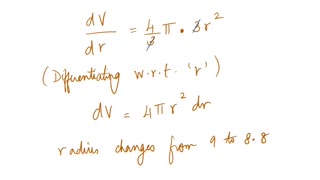 dV/dr = 4/3 π • 3r²
(Differentiating w.r.t. 'r')
dV = 4πr² dr
radius changes from 9 to 8.8